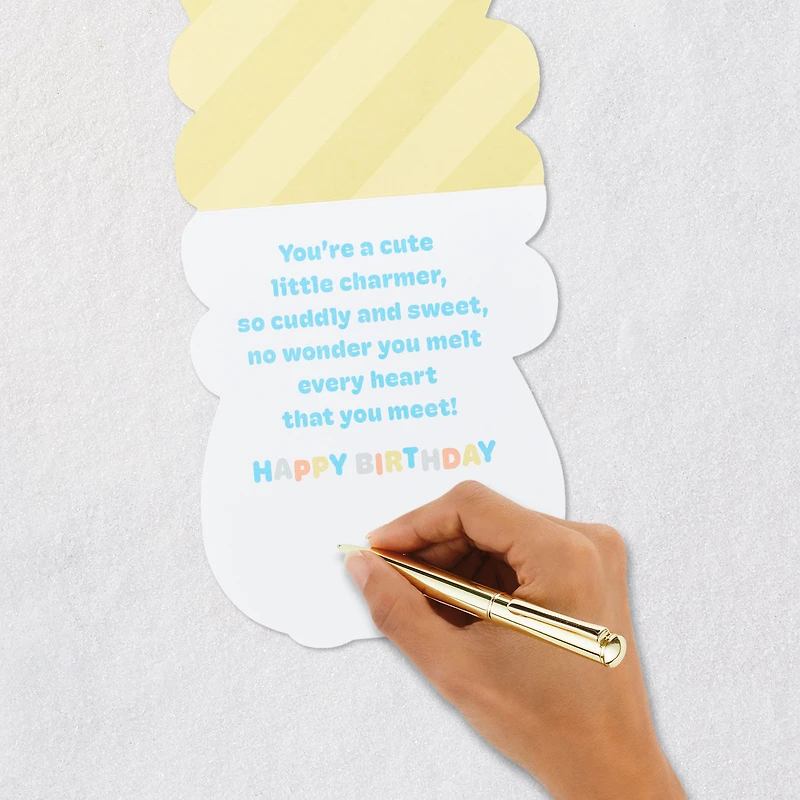 You're a cute
little charmer,
so cuddly and sweet,
no wonder you melt
every heart
that you meet!
HAPPY BIRTHDAY